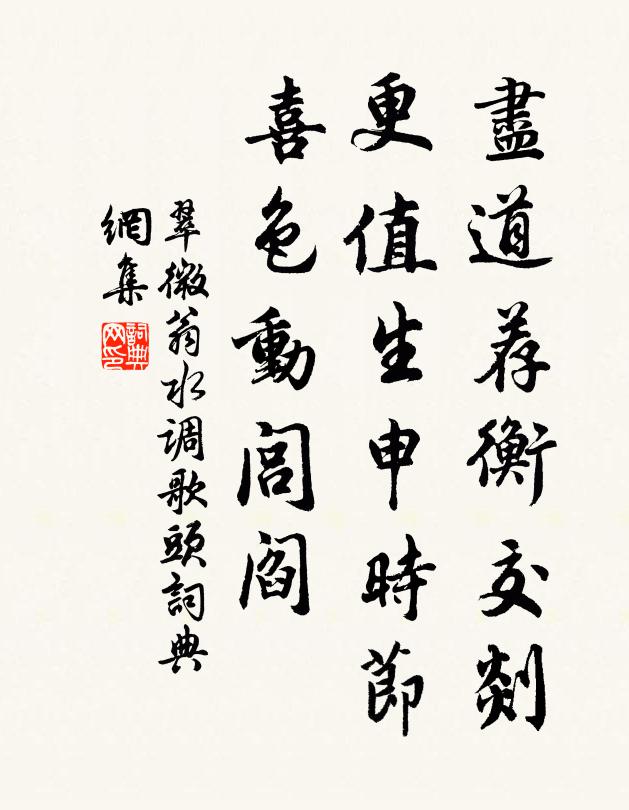 盡道荐衡交剡
更值生申時節
喜色動閭閻
翠微翁水调歌頭詞典
網集
詞典網印